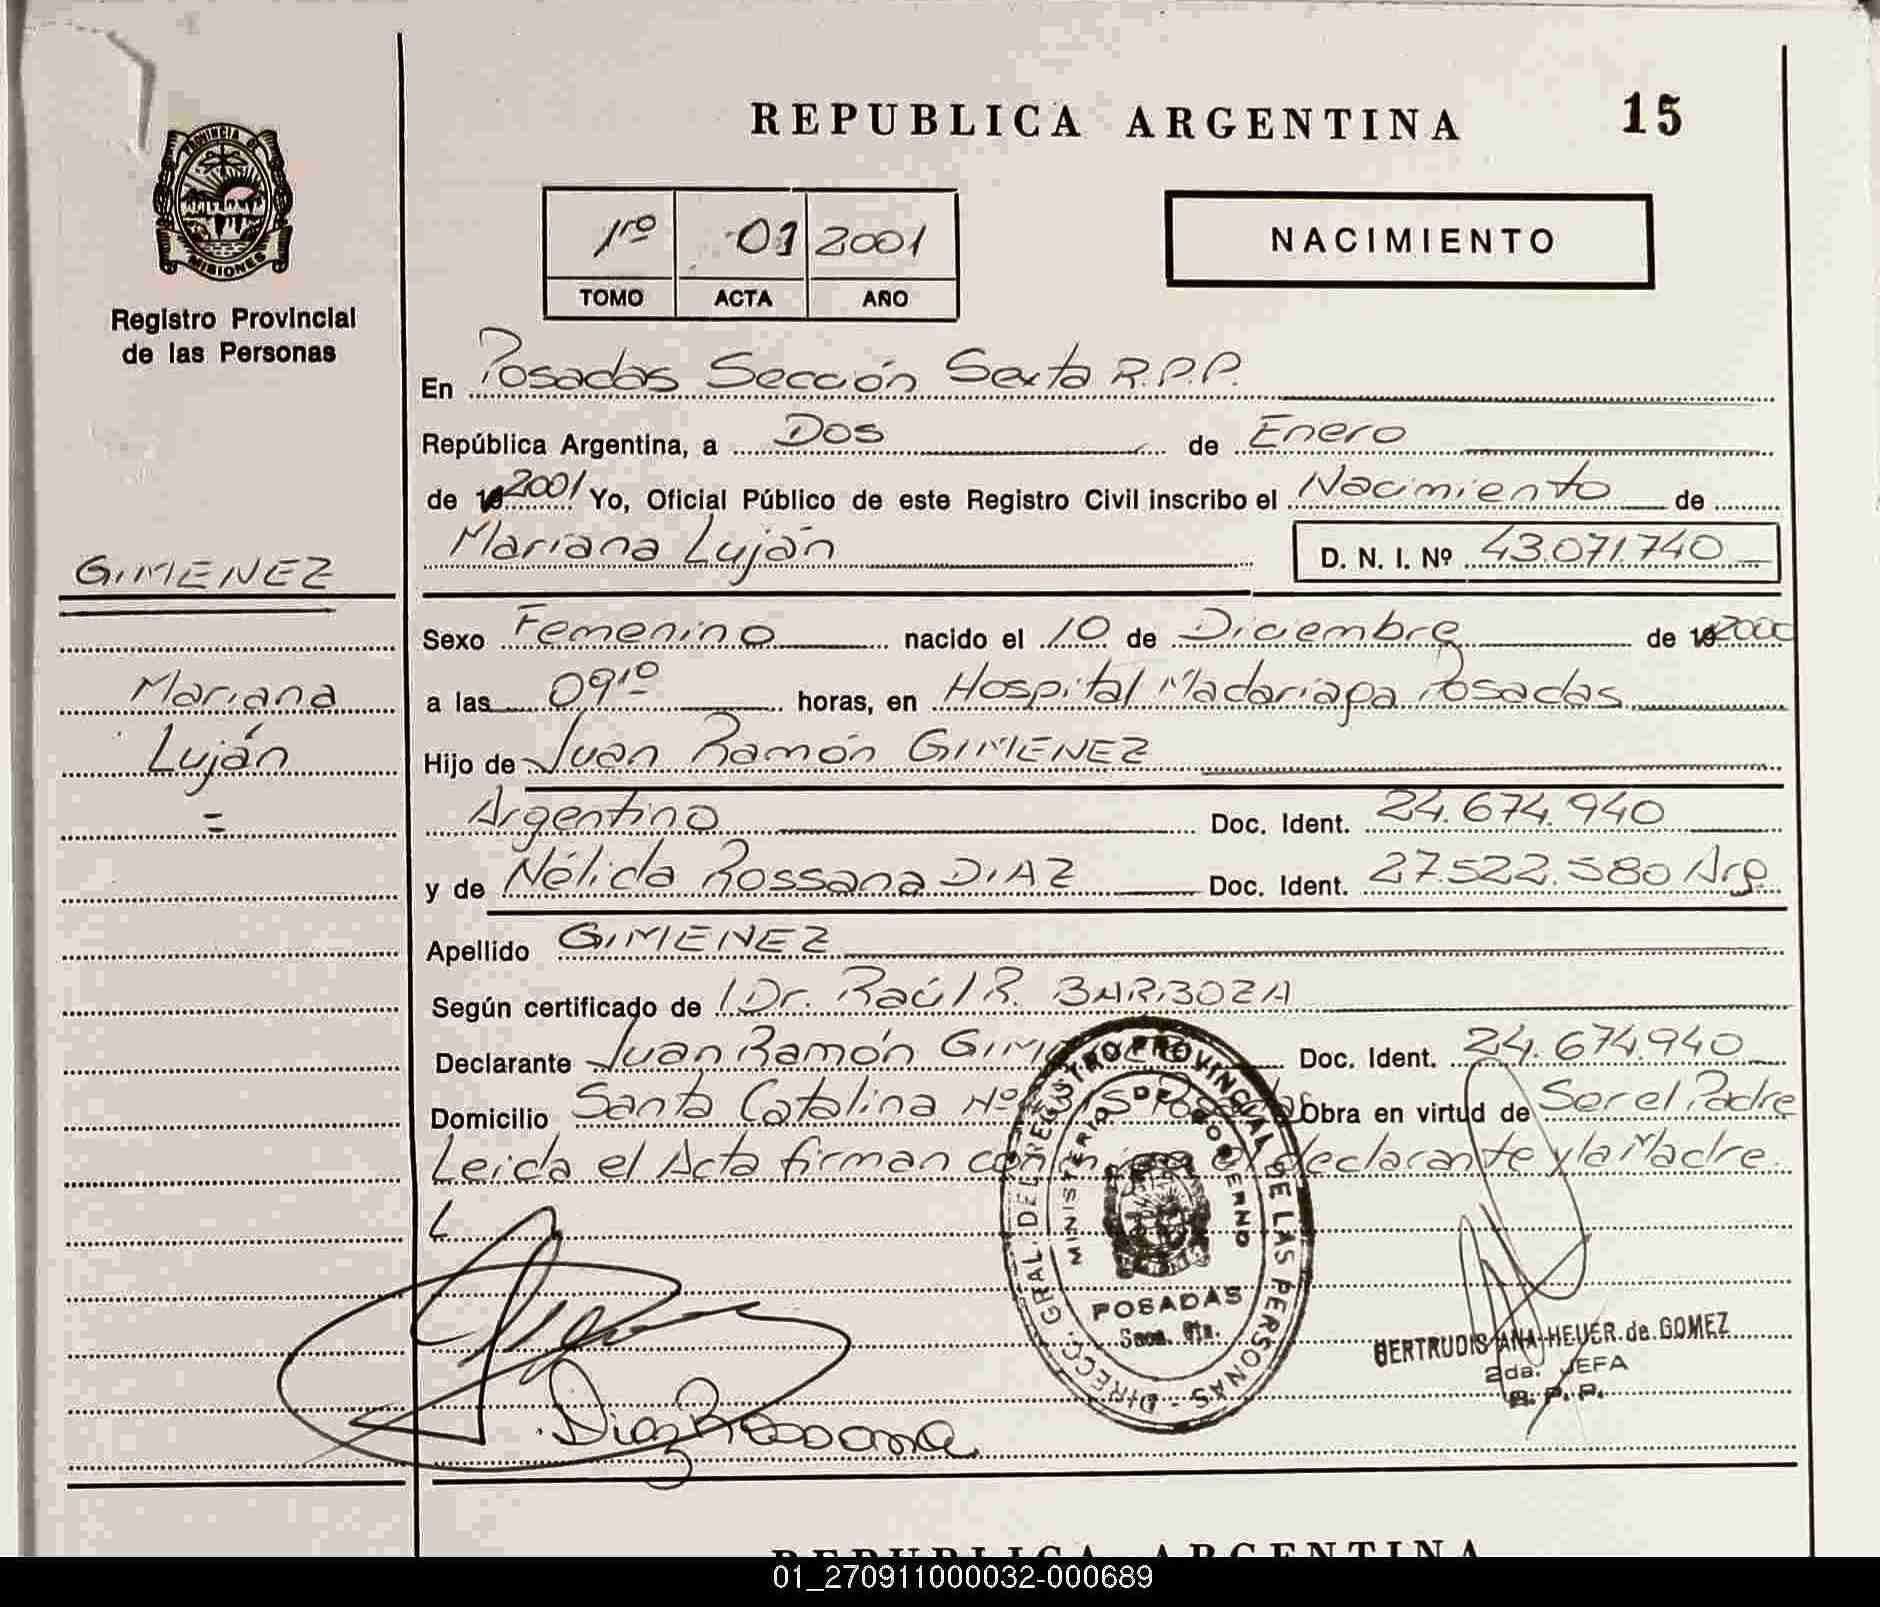 REPUBLICA ARGENTINA
15
PROVINCIA DE
MISIONES
Registro Provincial
de las Personas
1ro 01 2001
TOMO ACTA AÑO
NACIMIENTO
En Posadas Sección Sexta R.P.P.
República Argentina, a Dos de Enero
de 2001 Yo, Oficial Público de este Registro Civil inscribo el Nacimiento de
Mariana Luján D. N. I. Nº 43.071.740
GIMENEZ
Sexo Femenino nacido el 10 de Diciembre de 2000
Mariana
a las 09 10 horas, en Hospital Madariaga Posadas
Luján
Hijo de Juan Ramón GIMENEZ
Argentino Doc. Ident. 24.674.940
y de Nélida Rossana DIAZ Doc. Ident. 27.522.580 Arg.
Apellido GIMENEZ
Según certificado de Dr. Raúl R. BARBOZA
Declarante Juan Ramón Doc. Ident. 24.674.940
Domicilio Santa Catalina Nº Obra en virtud de Ser el Padre
Leida el Acta firman declarante y la Madre.
DIRECC. GRAL. DEL REGISTRO PROVINCIAL DE LAS PERSONAS
MINISTERIO DE GOBIERNO
POSADAS
Secc. 6ta.
GERTRUDIS ANA HEUER de GOMEZ
2da. JEFA
R. P. P.
Diaz Rossana
REPUBLICA ARGENTINA
01_270911000032-000689